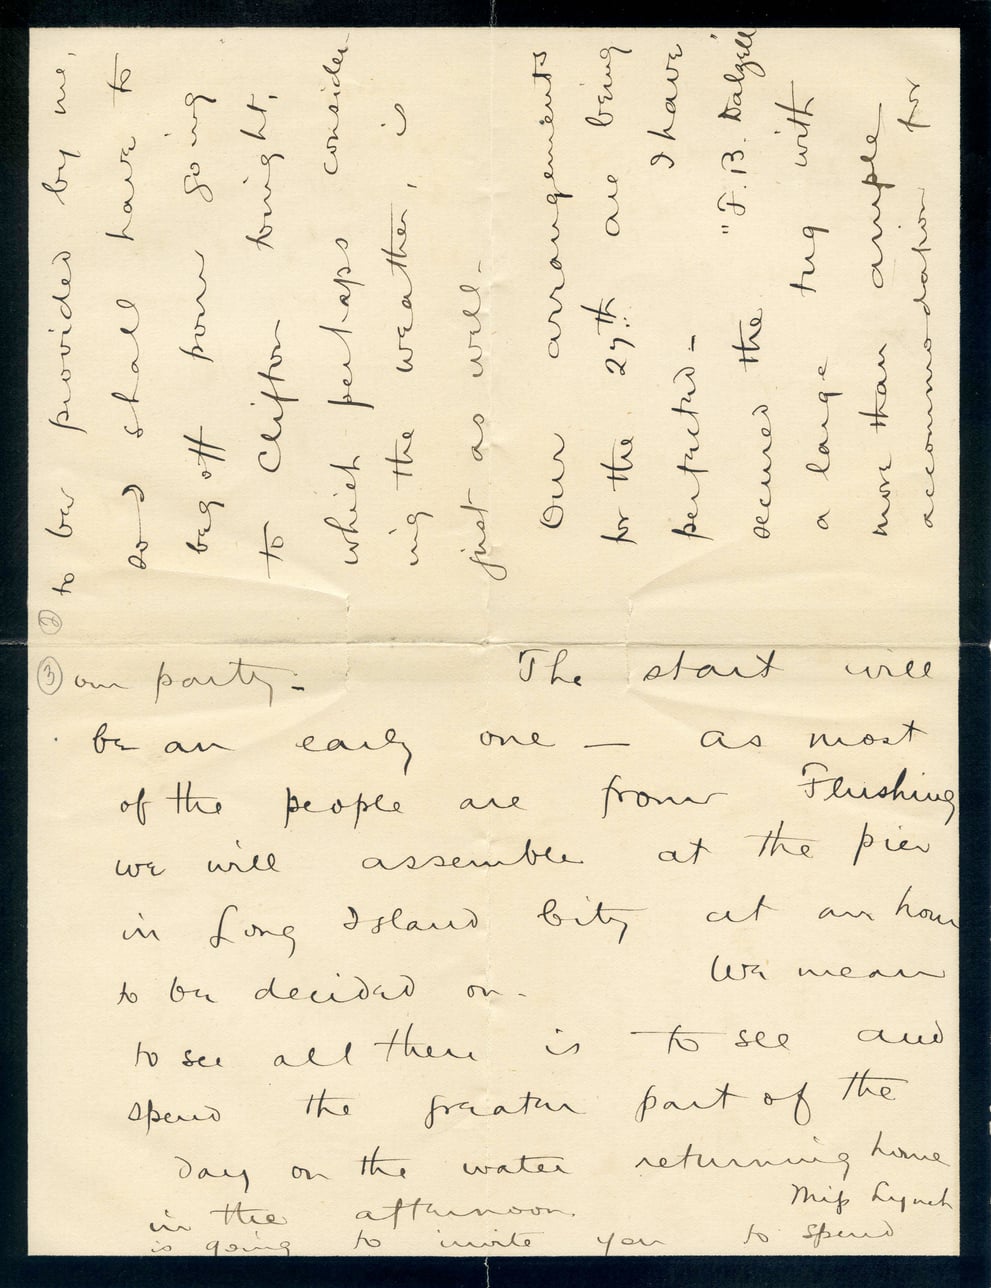 ②
to be provided by me,
so I shall have to
beg off from going
to Clifton tonight,
which perhaps consider-
ing the weather, is
just as well -
Our arrangements
for the 27th. are being
perfected - I have
secured the "F.B. Dalzell"
a large tug with
more than ample
accommodation for
③ our party - The start will
be an early one — as most
of the people are from Flushing
we will assemble at the pier
in Long Island City at an hour
to be decided on - We mean
to see all there is to see and
spend the greater part of the
day on the water returning home
in the afternoon. Miss Lynch
is going to invite you to spend